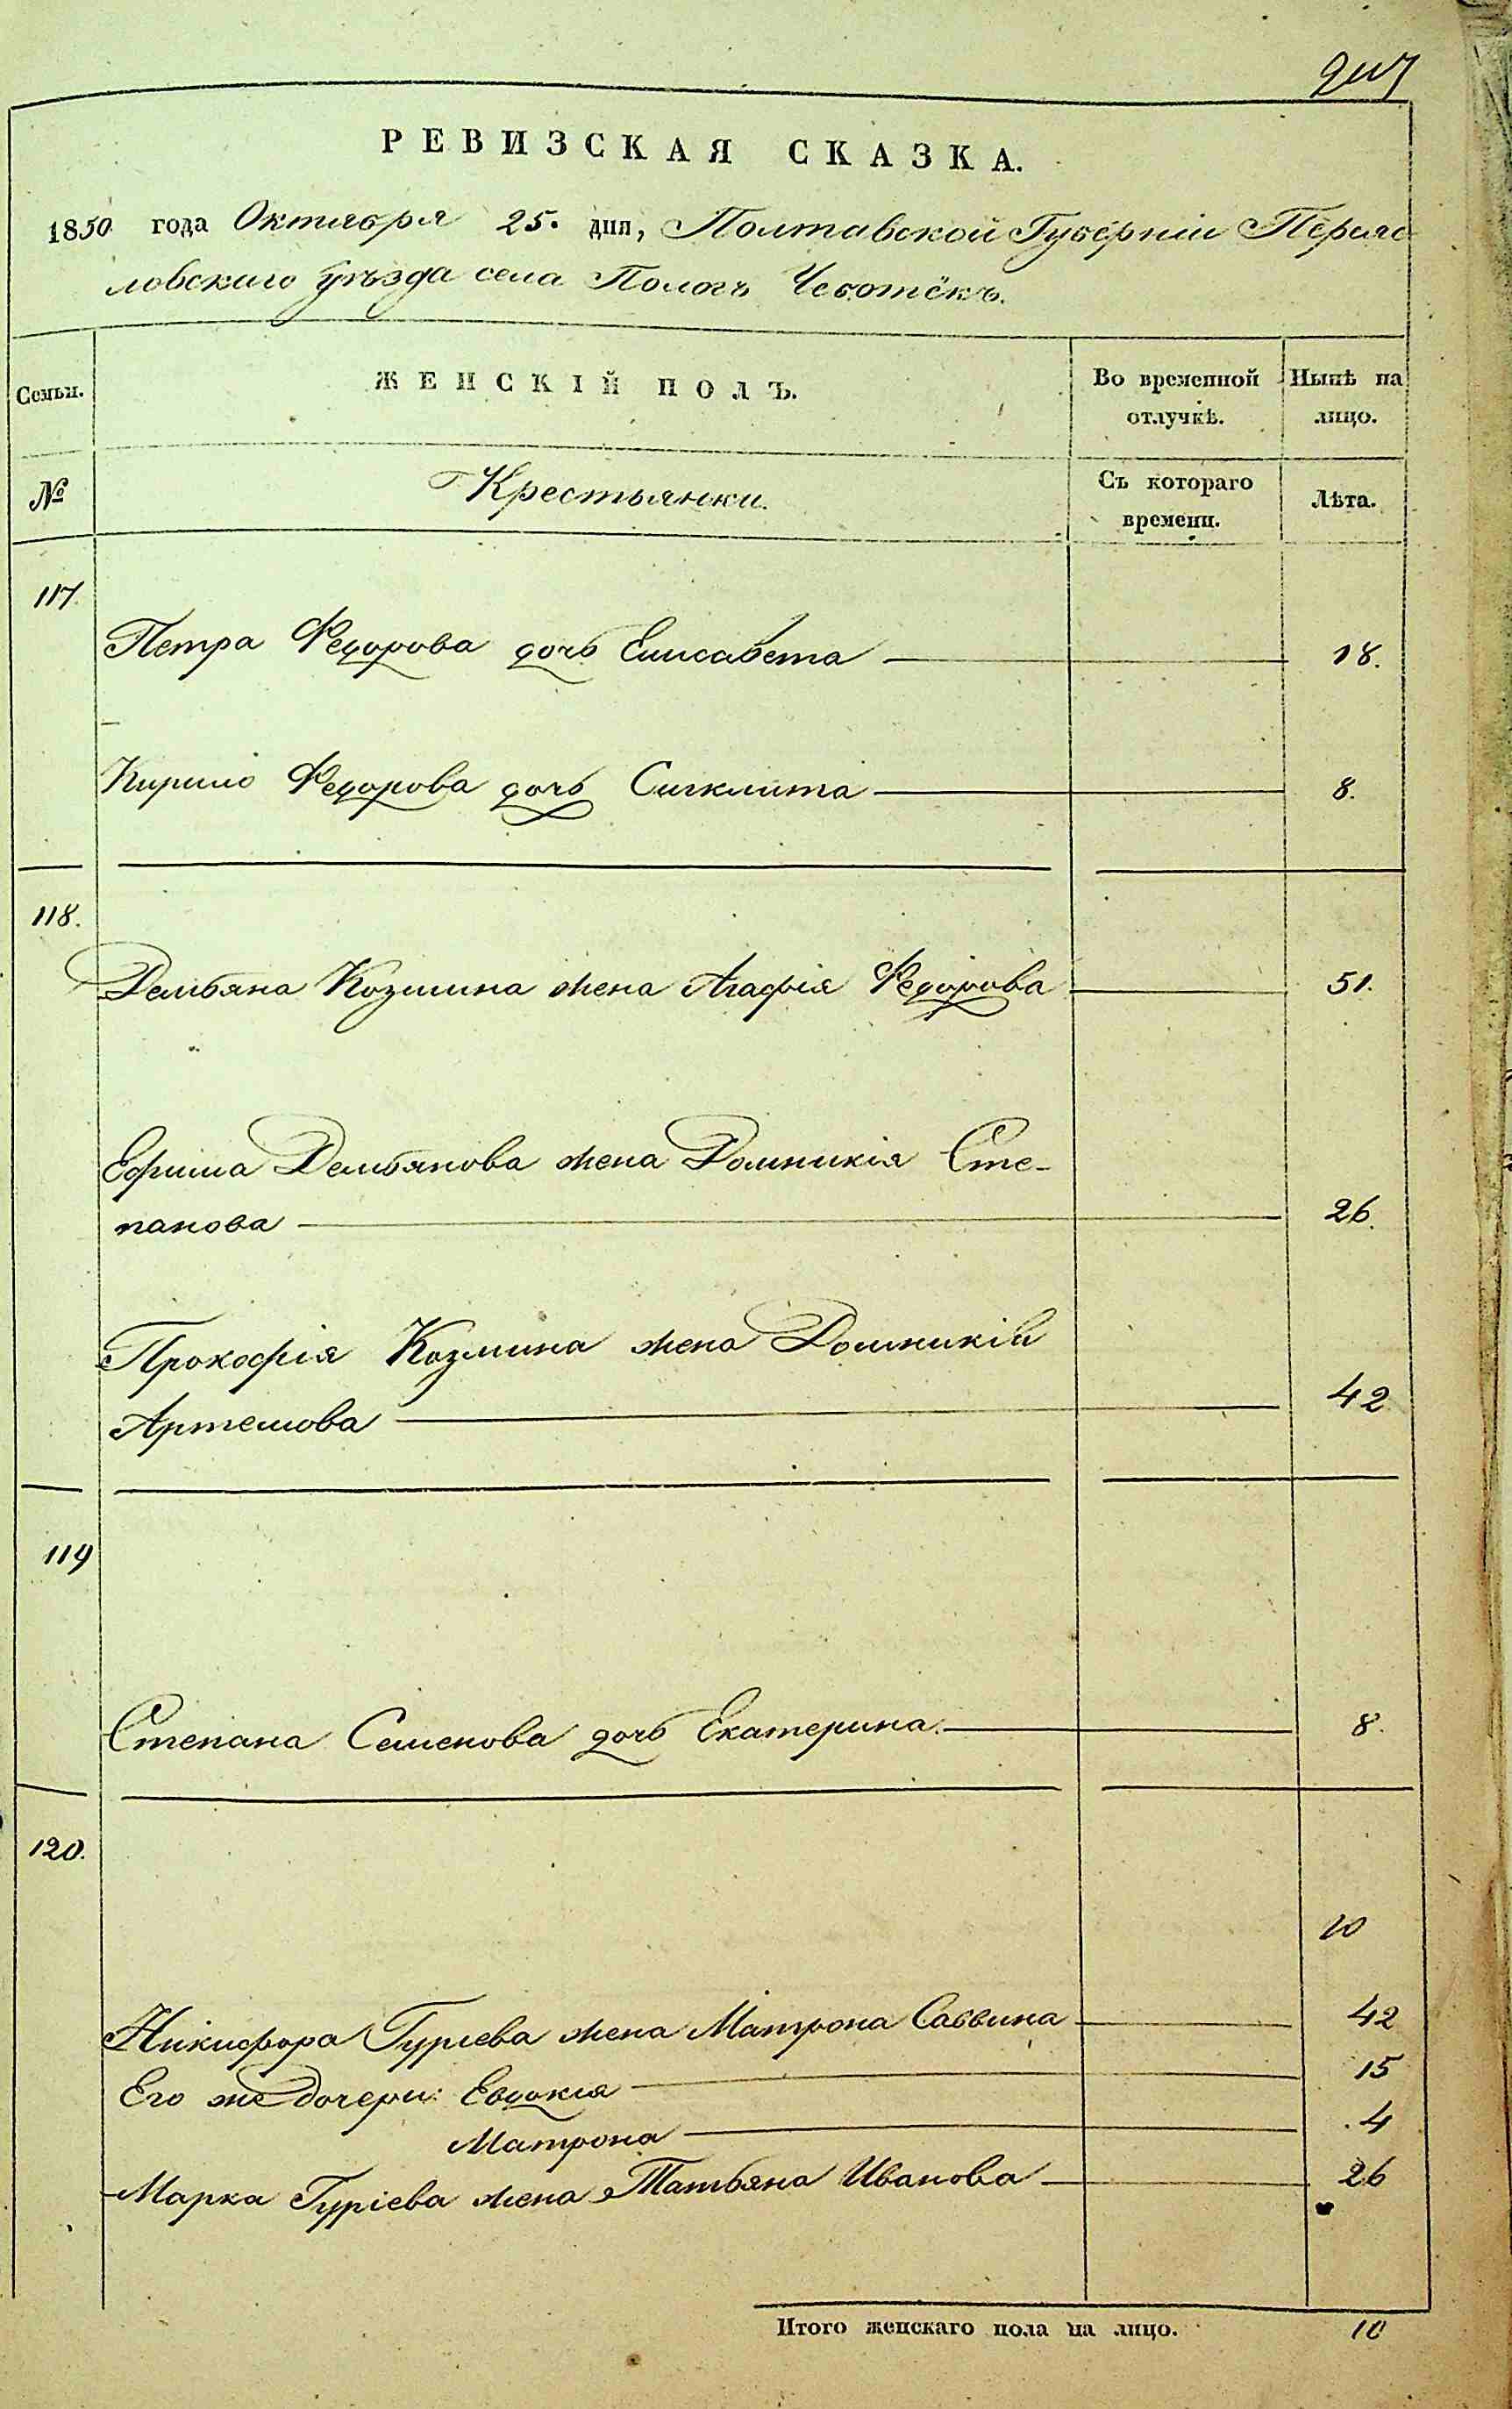 РЕВИЗСКАЯ СКАЗКА.
1850 года Октября 25. дня, Полтавской Губерніи Переяс
ловскаго уѣзда села Пологъ Чеботёкъ.
Семьи. ЖЕНСКІЙ ПОЛЪ. Во временной отлучкѣ. Нынѣ на лицо.
№ Крестьянки. Съ котораго времени. Лѣта.
117.
Петра Федорова дочь Елисавета 18.
Кирило Федорова дочь Сигклита 8.
118.
Демьяна Козмина жена Агафія Федорова 51.
Ефима Демьянова жена Домникія Сте-
панова 26.
Прокофія Козмина жена Домникія
Артемова 42
119
Степана Семенова дочь Екатерина. 8.
120.
10
Никифора Гуріева жена Матрона Саввина 42
Его же дочери: Евдокія 15
Матрона 4
Марка Гуріева жена Татьяна Иванова 26
Итого женскаго пола на лицо. 10